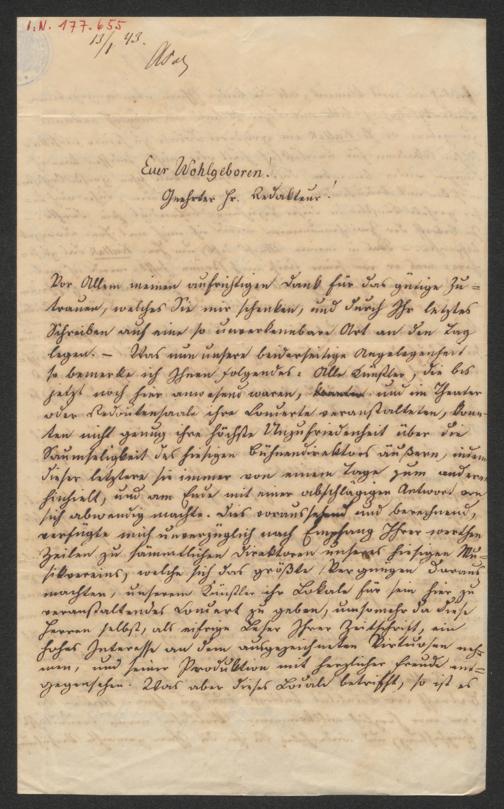 I.N. 177.655
13/1 43.
Euer Wohlgeboren!
Geehrter Hr. Redakteur!
Vor Allem meinen aufrichtigen Dank für das gütige Zu-
trauen, welches Sie mir schenken, und durch Ihr letztes
Schreiben auf eine so unverkennbare Art an den Tag
legen. – Was nun unsere beiderseitige Angelegenheit
so bemerke ich Ihnen folgendes: Alle Künstler, die bis
jetzt noch hier anwesend waren, und im Theater
oder Redoutensaale ihre Concerte veranstalteten, konn-
ten nicht genug ihre höchste Unzufriedenheit über die
Saumseligkeit des hiesigen Bühnendirektors äußern, indem
dieser letztere sie immer von einem Tage zum andern
hinhielt, und am Ende mit einer abschlägigen Antwort von
sich abwendig machte. Dies voraussehend und berechnend,
verfügte mich unverzüglich nach Empfang Ihrer werthen
Zeilen zu sämmtlichen Direktoren unseres hiesigen Mu-
sikvereins, welche sich das größte Vergnügen daraus
machten, unserem Künstler ihr Lokale für sein hier zu
veranstaltendes Concert zu geben, umsomehr da diese
Herren selbst, als eifrige Leser Ihrer Zeitschrift, ein
hohes Interesse an dem ausgezeichneten Virtuosen neh-
men, und seiner Produktion mit herzlicher Freude ent-
gegensehen. Was aber dieses Locale betrifft, so ist es